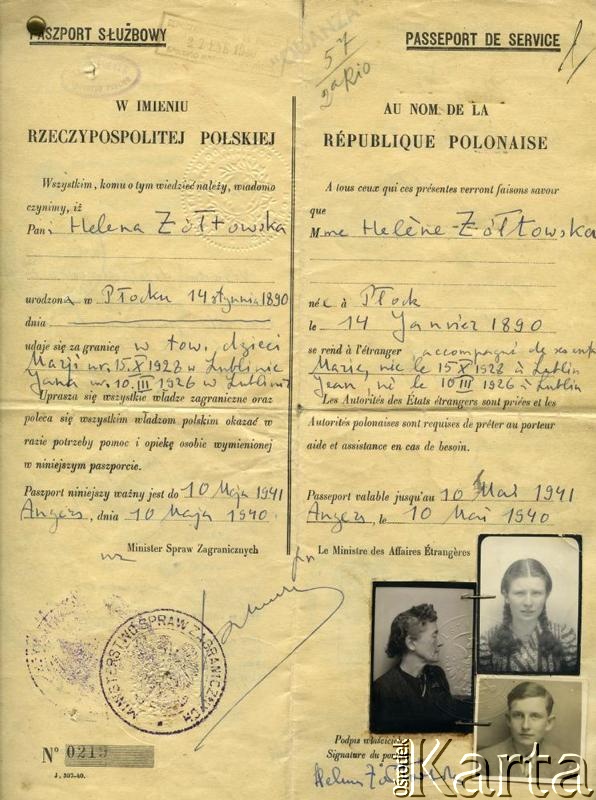 PASZPORT SŁUŻBOWY
PASSEPORT DE SERVICE
57
2a Rio
W IMIENIU
RZECZYPOSPOLITEJ POLSKIEJ
Wszystkim, komu o tym wiedzieć należy, wiadomo
czynimy, iż
Pani Helena Żółtowska
urodzona w Płocku 14 stycznia 1890
dnia
udaje się za granicę w tow. dzieci
Marji ur. 15.X 1928 w Lublinie
Jana ur. 10.III 1926 w Lublinie
Uprasza się wszystkie władze zagraniczne oraz
poleca się wszystkim władzom polskim okazać w
razie potrzeby pomoc i opiekę osobie wymienionej
w niniejszym paszporcie.
Paszport niniejszy ważny jest do 10 Maja 1941
Angers, dnia 10 Maja 1940.
Minister Spraw Zagranicznych
MINISTERSTWO SPRAW ZAGRANICZNYCH
N° 0213
J. 307-40.
AU NOM DE LA
RÉPUBLIQUE POLONAISE
A tous ceux qui ces présentes verront faisons savoir
que
Mme Helène Żółtowska
née à Płock
le 14 Janvier 1890
se rend à l'étranger accompagné de ses enf
Marie, née le 15 X 1928 à Lublin
Jean, né le 10 III 1926 à Lublin
Les Autorités des États étrangers sont priées et les
Autorités polonaises sont requises de prêter au porteur
aide et assistance en cas de besoin.
Passeport valable jusqu'au 10 Mai 1941
Angers, le 10 Mai 1940
Le Ministre des Affaires Étrangères
Podpis właściciela
Signature du
Helena
Ośrodek
Karta